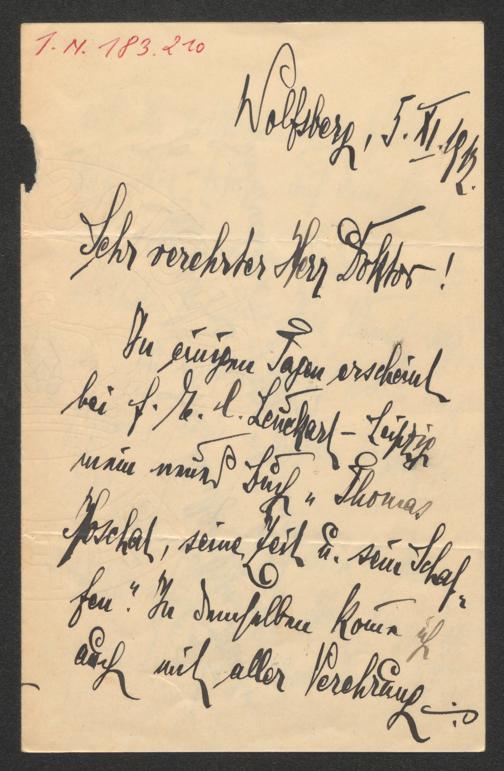 I. N. 183.210
Wolfsberg, 5. XI. 1912.
Sehr verehrter Herr Doktor!
In einigen Tagen erscheint
bei F. E. C. Leuckart - Leipzig
mein neues Buch „Thomas
Koschat, seine Zeit u. sein Schaf-
fen“. In demselben kom̅e ich
auch mit aller Verehrung